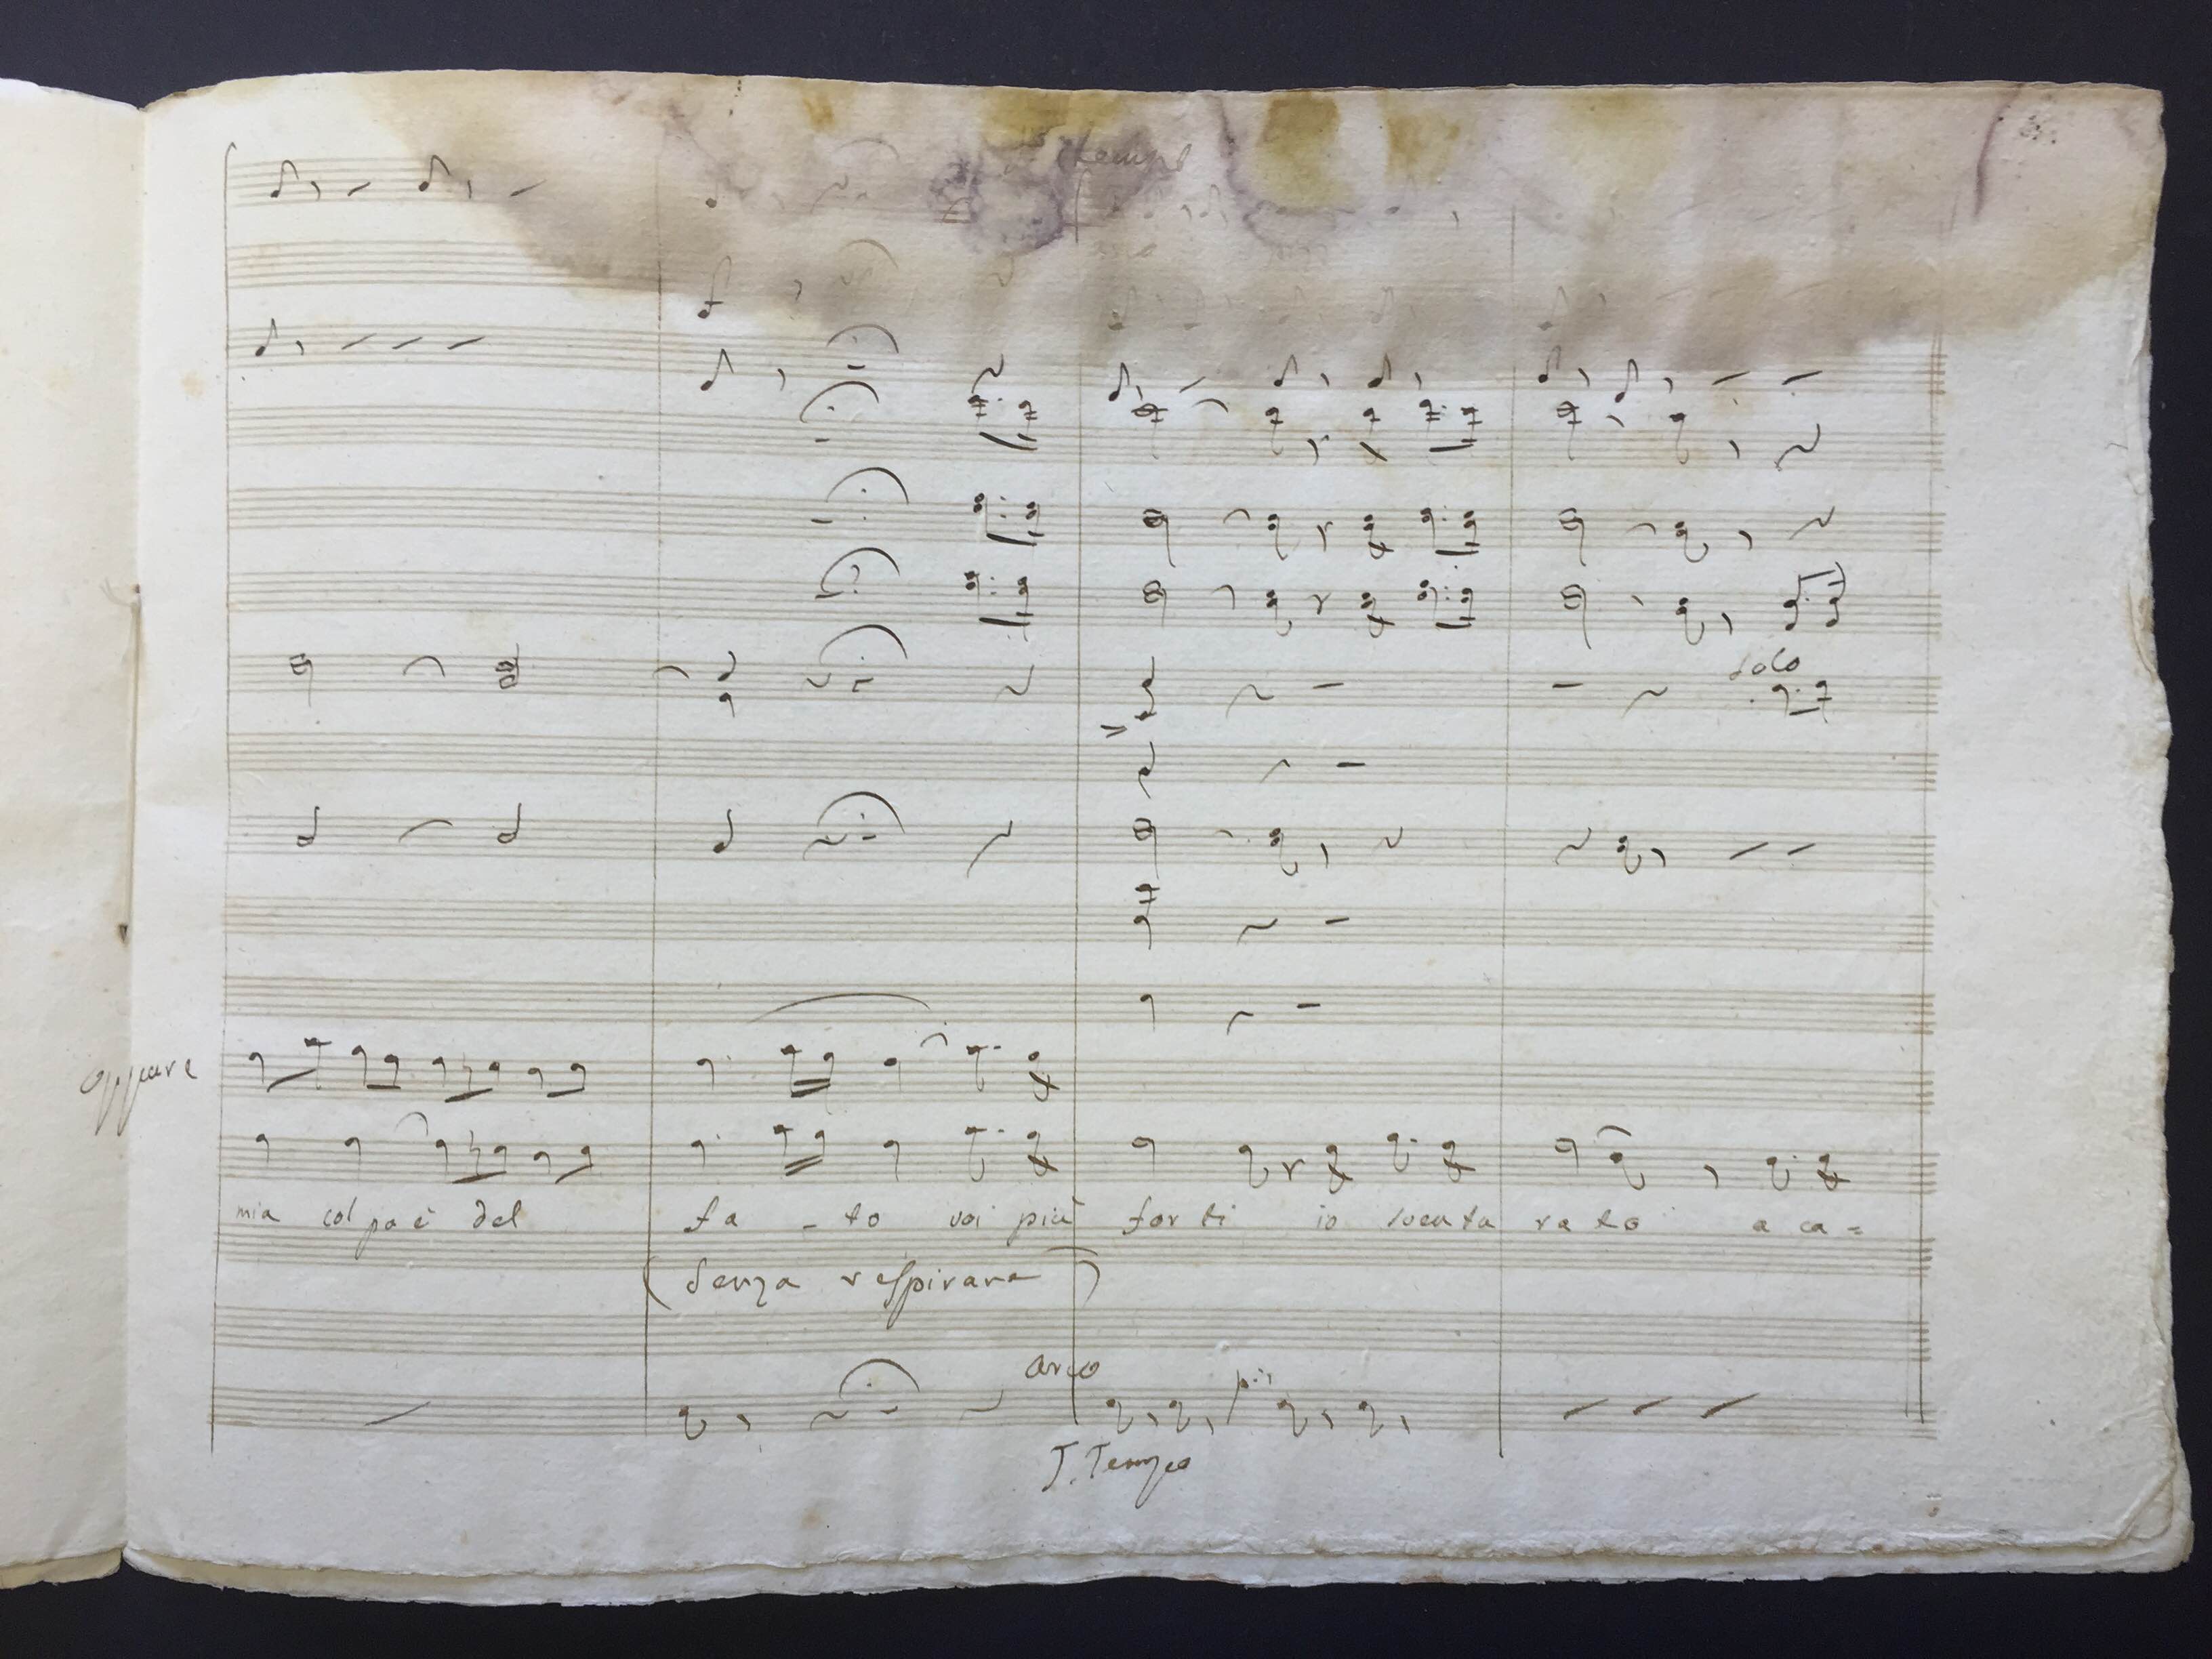 tempo
Solo
oppure
mia col pa è del fa - to voi più for ti io sventu ra to a ca =
(Senza respirare)
arco
I. Tempo